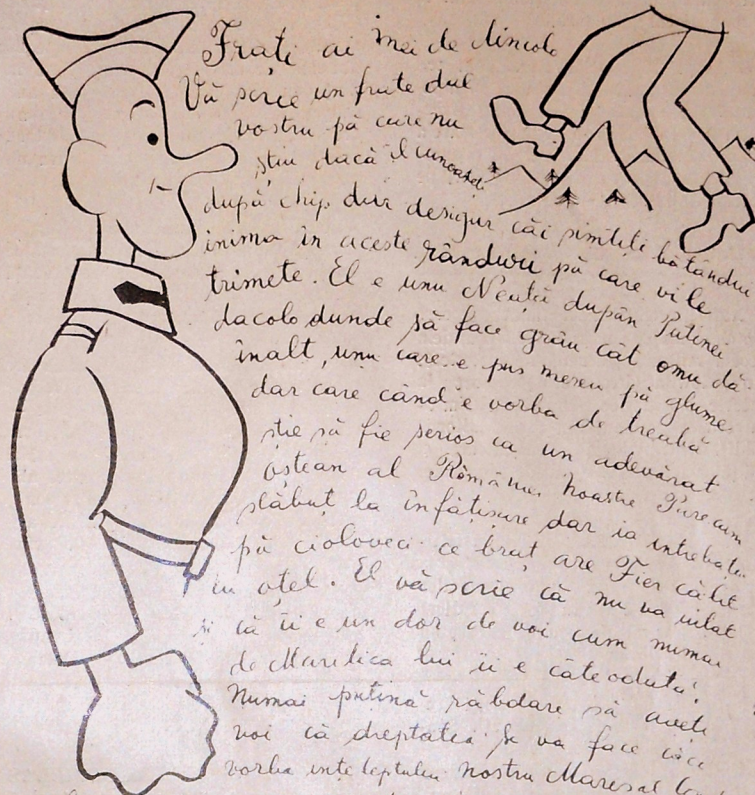 Frați ai mei de dincolo
Vă scrie un frate dal
vostru pă care nu
știu dacă îl cunoașteți
după chip dar desigur căi simțiți bătându
inima în aceste rânduri pă care vi le
trimete. El e unu Neață dupăn Putinei
dacolo dunde să face grâu cât omu dă
înalt, unu care e pus mereu pă glume
dar care când e vorba de treabă
știe să fie serios ca un adevărat
oștean al României noastre Pare cam
slăbuț la înfățișare dar ia întrebați
pă cioloveci ce braț are Fier călit
în oțel. El vă scrie că nu va uitat
și că îi e un dor de voi cum numai
de Marelica lui îi e câteodată!
Numai puțină răbdare să aveți
voi că dreptatea se va face căci
vorba înțeleptului nostru Mareșal